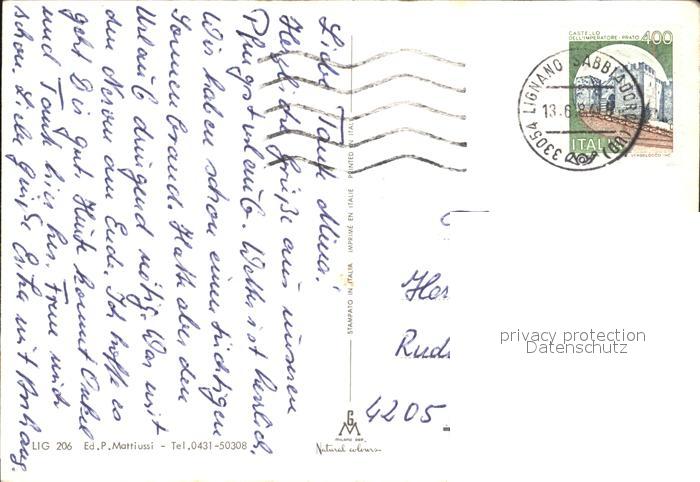 Liebe Tante Minna!
Herzliche Grüße aus unserem
Pfingsturlaub. Wetter ist herrlich.
Wir haben schon einen tüchtigen
Sonnenbrand. Hatte aber den
Urlaub dringend nötig. War mit
den Nerven am Ende. Ich hoffe es
geht Dir gut. Heute kommt Onkel
und Tante hier her. Freue mich
schon. Liebe Grüße mit Anhang.
CASTELLO
DELL'IMPERATORE - PRATO 400
ITALIA
33054 LIGNANO SABBIADORO (UD)
13.6.8
STAMPATO IN ITALIA IMPRIMÉ EN ITALIE PRINTED IN ITALY
Rud
4205
privacy protection
Datenschutz
GM
milano
Natural colours
LIG 206 Ed. P. Mattiussi - Tel. 0431-50308